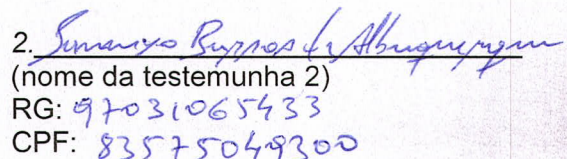 2. Barros de Albuquerque
(nome da testemunha 2)
RG: 97031065433
CPF: 83575049300